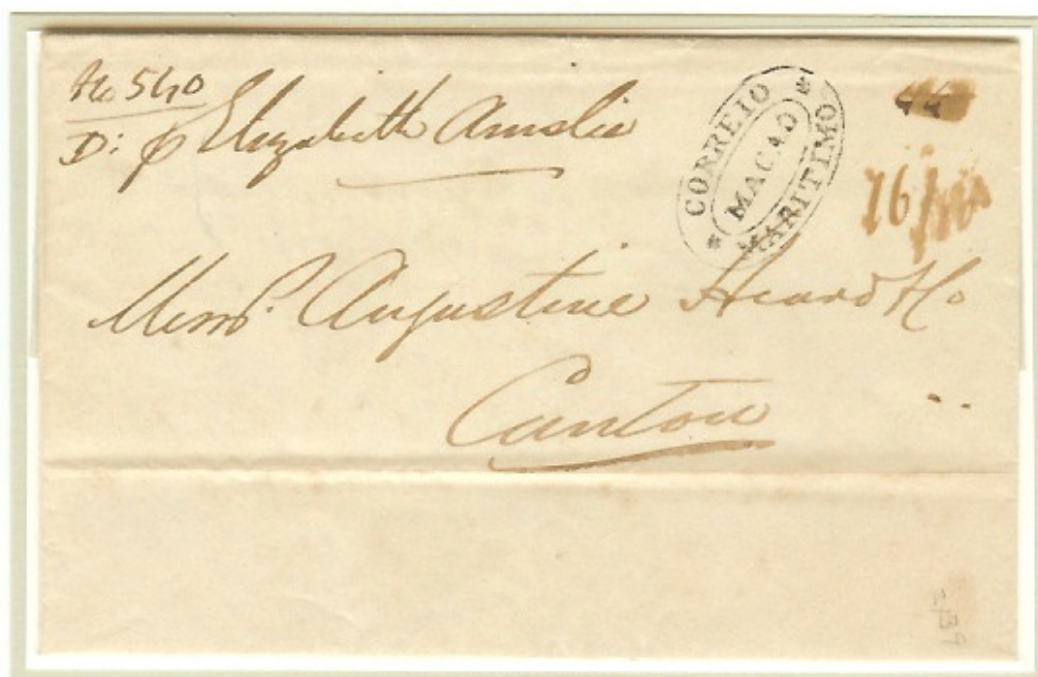 No 540
D: p Elizabeth Ainslie
CORREIO
MACAO
MARITIMO
16
Messrs. Augustine Heard & Co
Canton